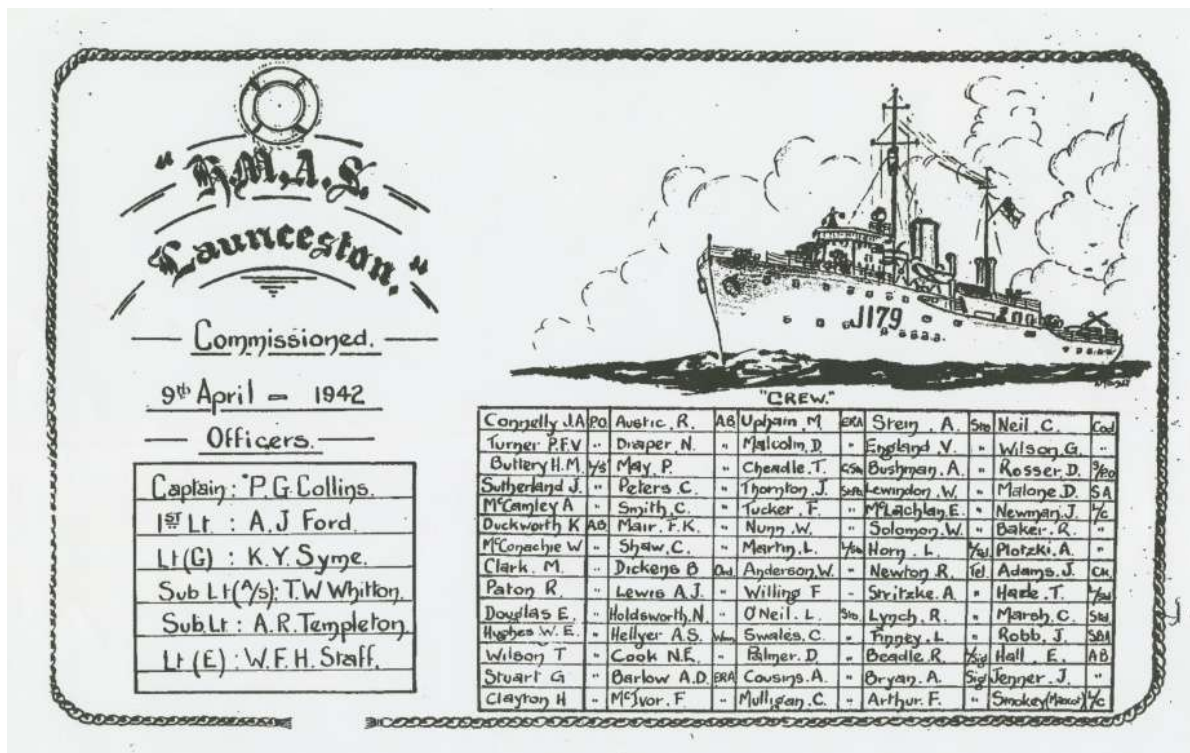 "H.M.A.S.
Launceston."
Commissioned.
9th April - 1942
Officers.
Captain: P.G. Collins.
1ST Lt. : A.J Ford.
Lt(G) : K.Y. Syme.
Sub Lt(A/s): T.W Whitton.
Sub.Lt : A.R. Templeton.
Lt (E) : W.F.H. Staff.
J179
"CREW."
Connelly J.A P.O. Austic. R. AB Upham. M ERA Stein . A. Sto Neil . C. Cod
Turner P.F.V " Draper N. " Malcolm. D " England .V. " Wilson. G. "
Buttery H.M. L/S May. P. " Cheadle. T. Bushman. A. " Rosser. D.
Sutherland J. " Peters. C. " Thornton. J. Lewindon. W. " Malone. D. SA
McCamley A " Smith. C. " Tucker . F. " McLachlan. E. " Newman. J. L/C
Duckworth K AB. Mair. F.K. " Nunn .W. " Solomon. W. " Baker. R. "
McConachie W " Shaw. C. " Martin. L. Horn . L. L/Tel. Plotzki. A. "
Clark. M. " Dickens B Ord. Anderson. W. " Newton R. Tel. Adams. J. CK.
Paton R. " Lewis A.J. " Willing F - Stritzke. A. " Harte. T.
Douglas E. " Holdsworth. N " O'Neil . L. Sto. Lynch. R. " Marsh. C. Std
Hughes W. E. " Hellyer A.S. Swales. C. " Finney. L. " Robb. J. SBA
Wilson T " Cook N.E. " Palmer. D " Beadle. R. L/Sig Hall . E. AB
Stuart G " Barlow A.D. ERA Cousins. A. " Bryan. A. Sig Jenner. J. "
Clayton H " McIvor. F " Mulligan. C. " Arthur. F. " Smokey (Mascot) L/C